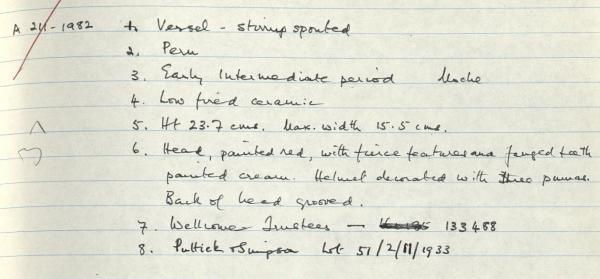 A 211-1982 1. Vessel - stirrup spouted
2. Peru
3. Early Intermediate period Moche
4. Low fired ceramic
5. Ht 23.7 cms. Max. width 15.5 cms.
6. Head, painted red, with fierce features and fanged teeth
painted cream. Helmet decorated with three pumas.
Back of head grooved.
7. Wellcome Trustees — 133488
8. Puttick & Simpson Lot 51/2/11/1933